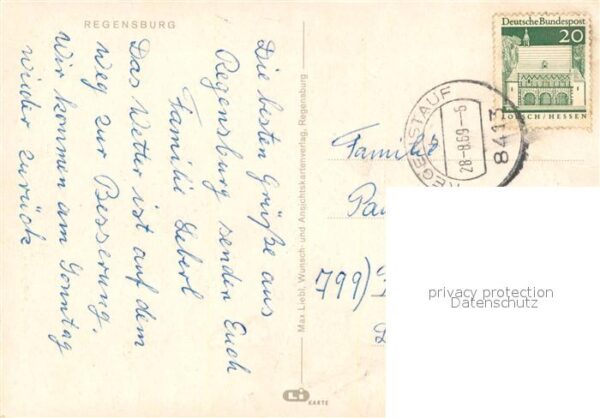 REGENSBURG
Die besten Grüße aus
Regensburg senden Euch
Familie Leberl
Das Wetter ist auf dem
weg zur Besserung.
Wir kommen am Sonntag
wieder zurück
Max Liebl, Wunsch- und Ansichtskartenverlag, Regensburg
Li
KARTE
Deutsche Bundespost
20
LORSCH/HESSEN
8413 REGENSTAUF
28-8.69-
Familie
799)
privacy protection
Datenschutz